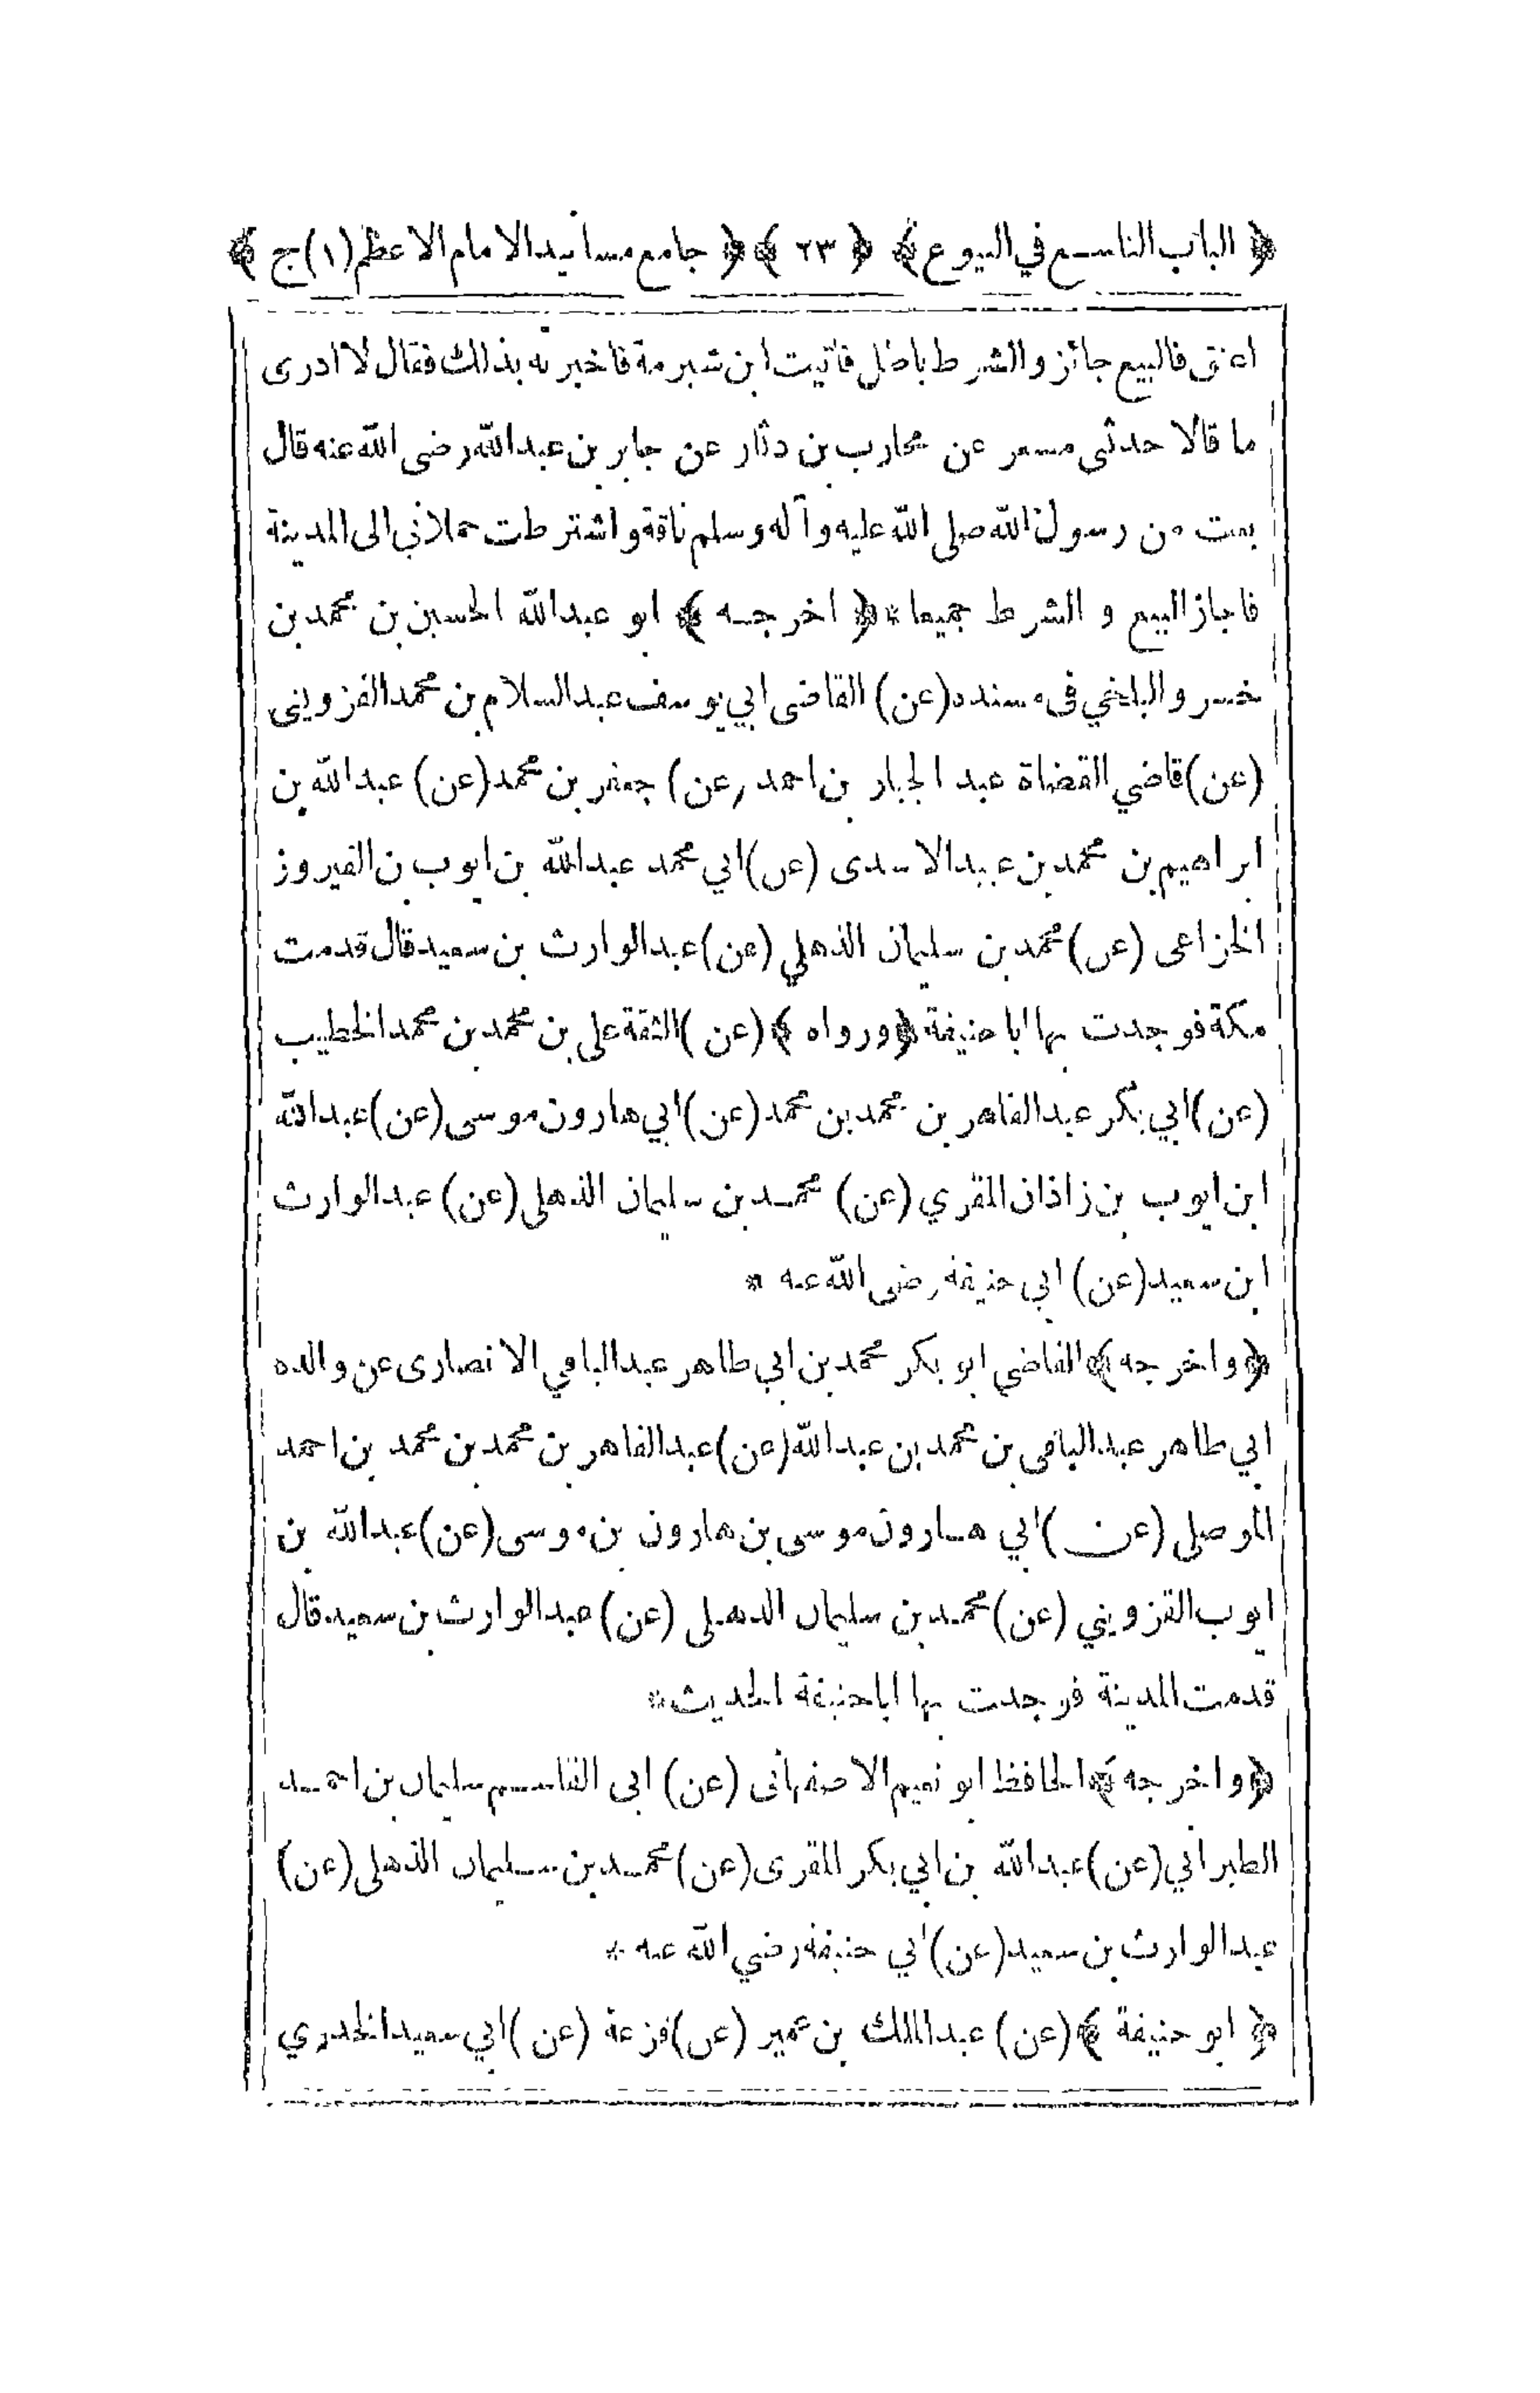 ﴿ الباب التاسع في البيوع ﴾ ﴿ ٢٣ ﴾ ﴿ جامع مسانيد الامام الاعظم (١) ج ﴾
اعتق فالبيع جائز والشرط باطل فاتيت ابن شبرمة فاخبرته بذلك فقال لا ادرى
ما قالا حدثى مسعر عن محارب بن دثار عن جابر بن عبدالله رضى الله عنه قال
بعت من رسول الله صلى الله عليه وآله وسلم ناقة واشترطت حملانى الى المدينة
فاجاز البيع و الشرط جميعا * ﴿ اخرجه ﴾ ابو عبدالله الحسين بن محمد بن
خسرو البلخي فى مسنده (عن) القاضى ابي يوسف عبدالسلام بن محمد القزوينى
(عن) قاضي القضاة عبد الجبار بن احمد (عن) جعفر بن محمد (عن) عبدالله بن
ابراهيم بن محمد بن عبيد الاسدى (عن) ابي محمد عبدالله بن ايوب بن الفيروز
الخزاعى (عن) محمد بن سليمان الذهلي (عن) عبدالوارث بن سعيد قال قدمت
مكة فوجدت بها ابا حنيفة ﴿ ورواه ﴾ (عن) الثقة على بن محمد بن محمد الخطيب
(عن) ابي بكر عبدالقاهر بن محمد بن محمد (عن) ابي هارون موسى (عن) عبدالله
ابن ايوب بن زاذان المقري (عن) محمد بن سليمان الذهلى (عن) عبدالوارث
ابن سعيد (عن) ابي حنيفة رضى الله عنه *
﴿ واخرجه ﴾ القاضي ابو بكر محمد بن ابي طاهر عبدالباقي الانصارى عن والده
ابي طاهر عبدالباقى بن محمد بن عبدالله (عن) عبدالقاهر بن محمد بن محمد بن احمد
الموصلى (عن) ابي هارون موسى بن هارون بن موسى (عن) عبدالله بن
ايوب القزويني (عن) محمد بن سليمان الذهلى (عن) عبدالوارث بن سعيد قال
قدمت المدينة فوجدت بها ابا حنيفة الحديث *
﴿ واخرجه ﴾ الحافظ ابو نعيم الاصفهانى (عن) ابى القاسم سليمان بن احمد
الطبراني (عن) عبدالله بن ابي بكر المقرى (عن) محمد بن سليمان الذهلى (عن)
عبدالوارث بن سعيد (عن) ابي حنيفة رضي الله عنه *
﴿ ابو حنيفة ﴾ (عن) عبدالملك بن عمير (عن) قزعة (عن) ابي سعيد الخدري